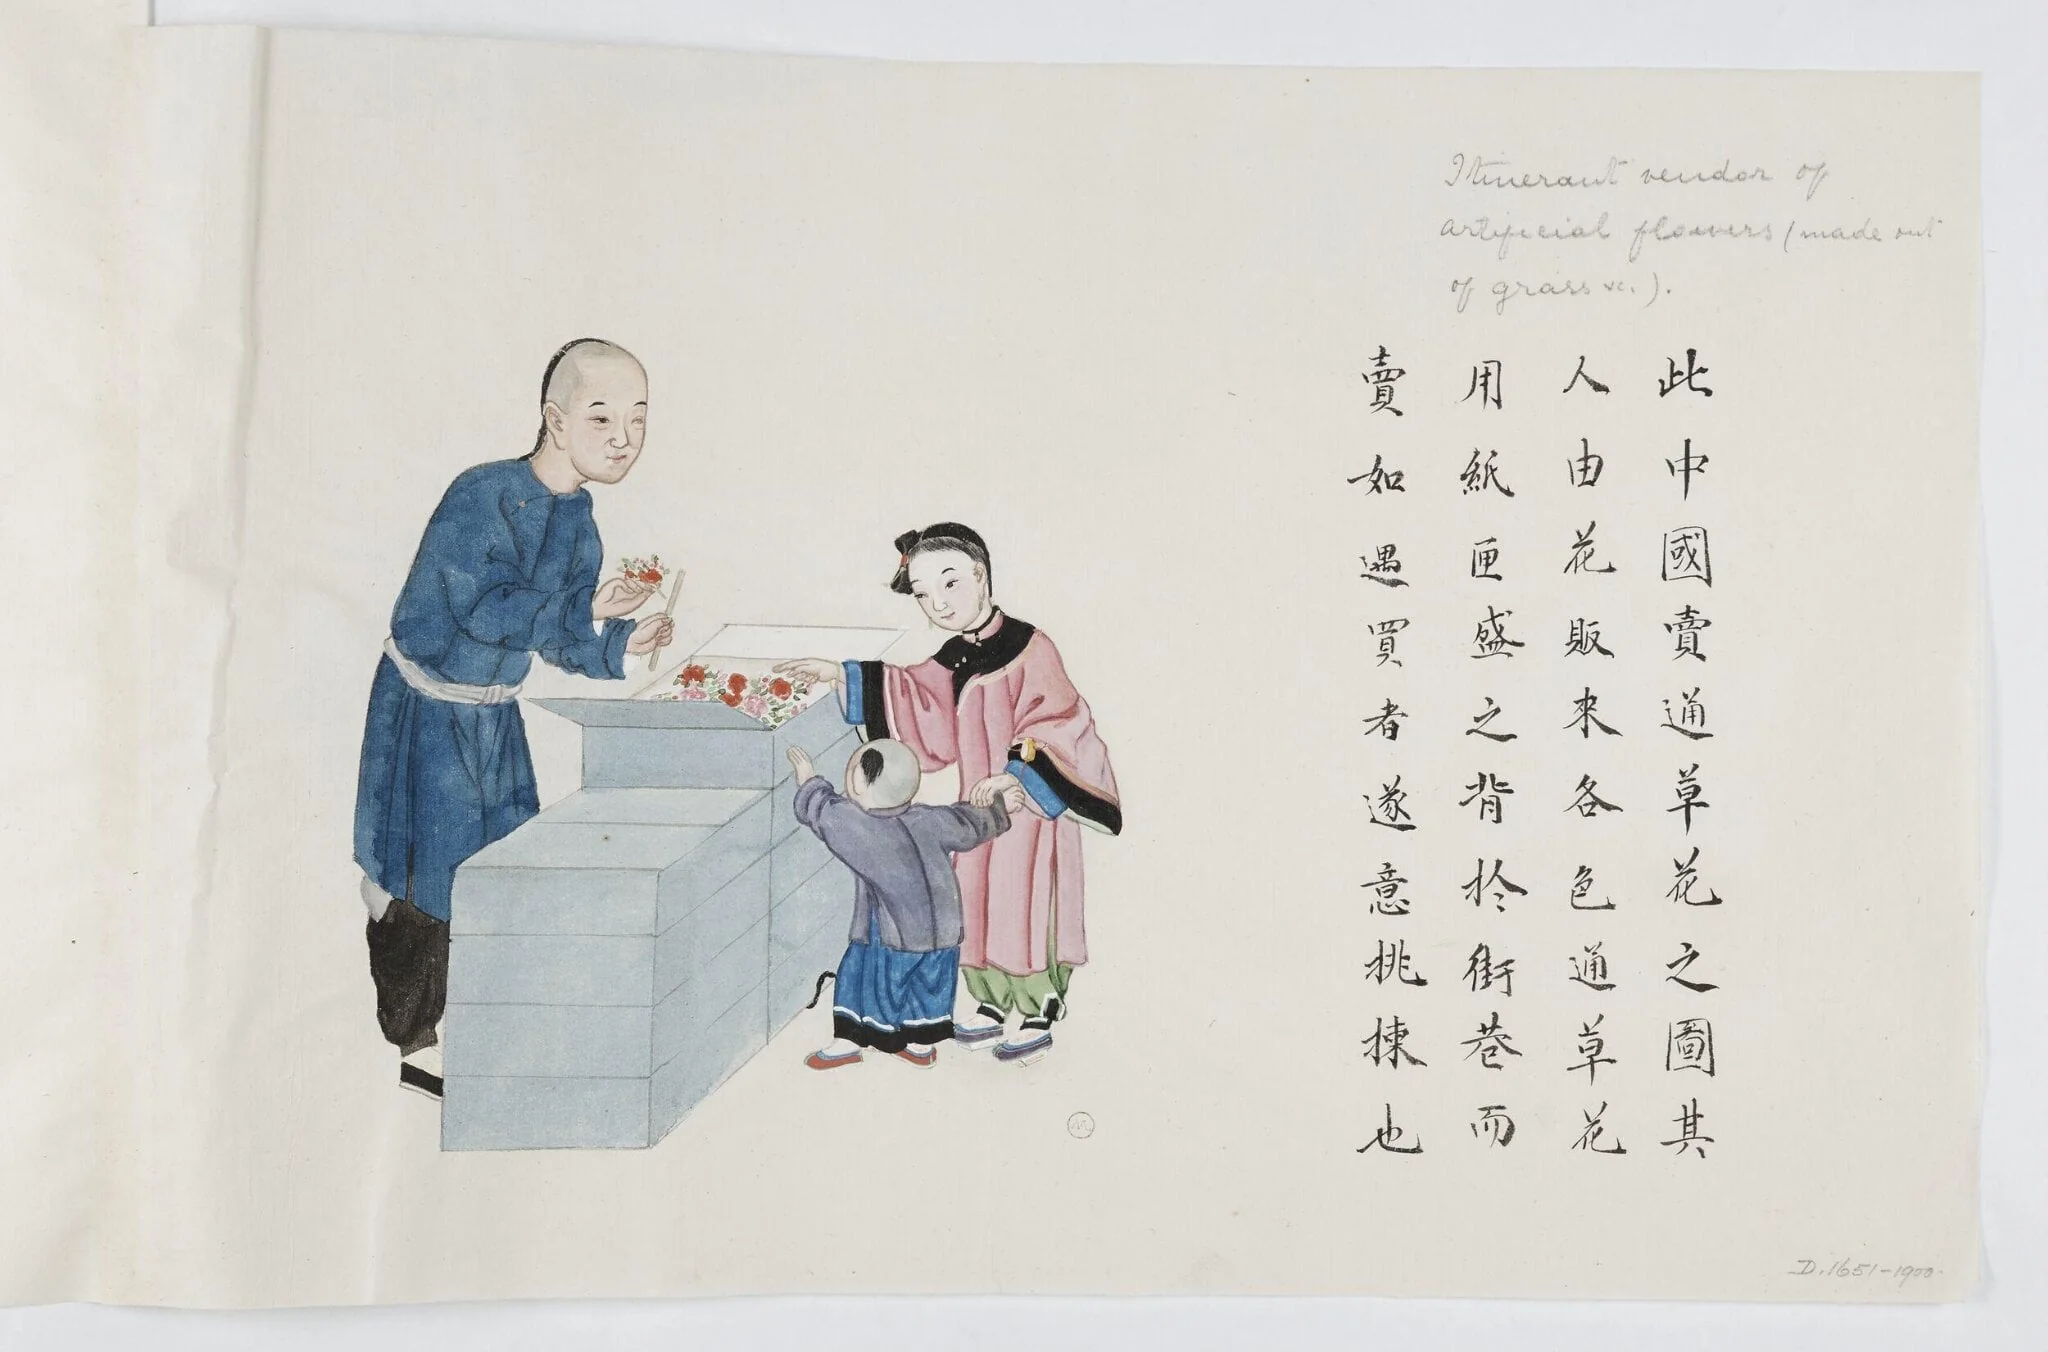 Itinerant vendor of
artificial flowers (made out
of grass &c.).
此中國賣通草花之圖其
人由花販來各色通草花
用紙匣盛之背於街巷而
賣如遇買者遂意挑揀也
D.1651-1900.